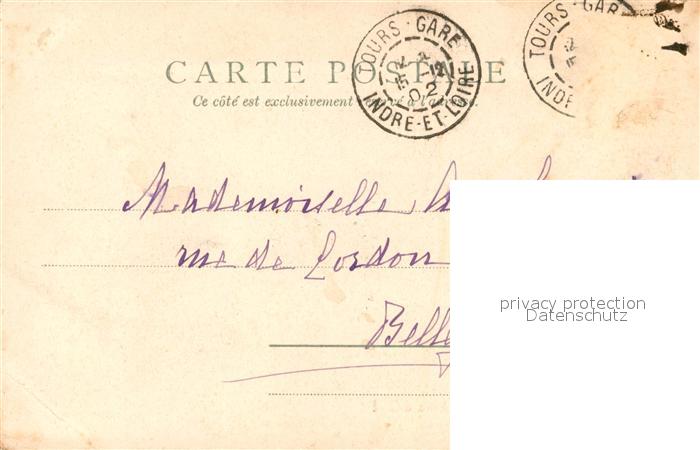 CARTE POSTALE
Ce côté est exclusivement réservé à l'adresse.
TOURS-GARE
INDRE-ET-LOIRE
02
TOURS-GAR
INDRE
Mademoiselle
rue de Cordon
Belle
privacy protection
Datenschutz